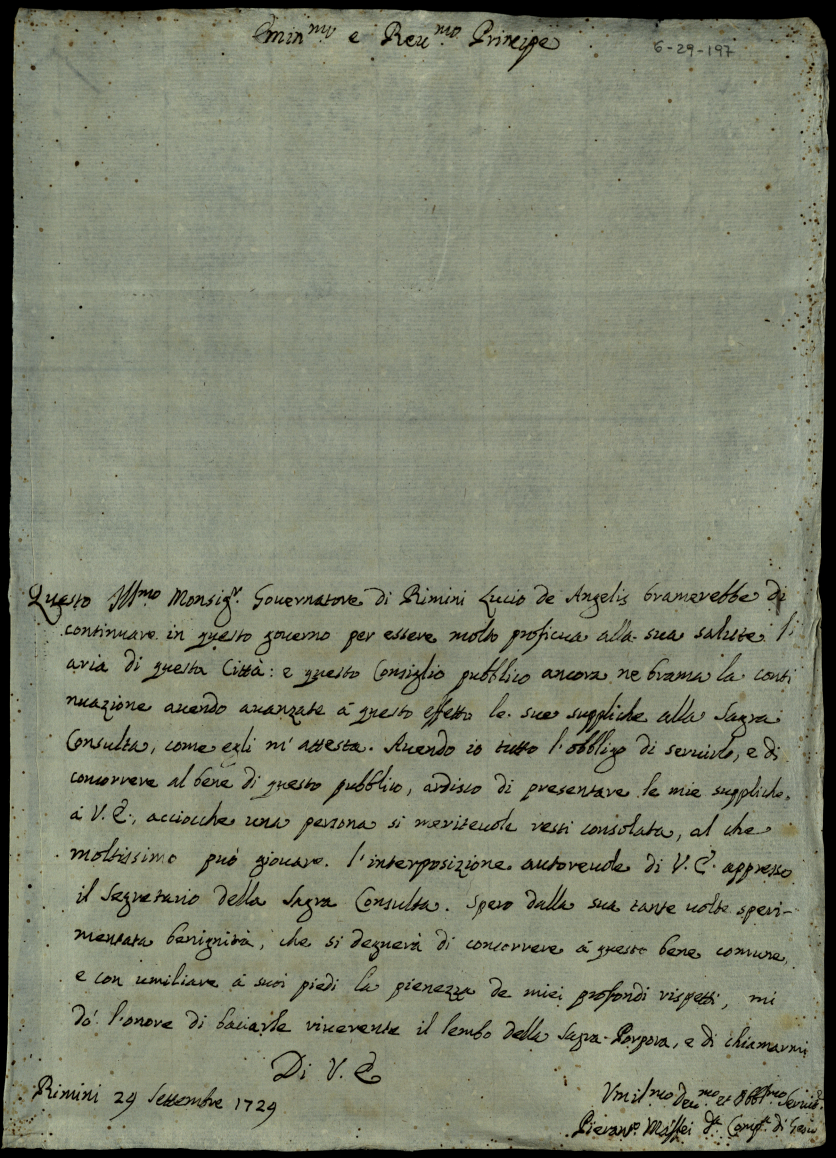 Emin^mo e Reu^mo Principe
6-29-197
Questo Ill^mo Monsig^r. Gouernatore di Rimini Lucio de Angelis bramerebbe di
continuare in questo gouerno per essere molto proficua alla sua salute l'
aria di questa Città: e questo Consiglio pubblico ancora ne brama la conti
nuazione auendo auanzate à questo effetto le sue suppliche alla Sagra
Consulta, come egli m'attesta. Auendo io tutto l'obbligo di seruirlo, e di
concorrere al bene di questo pubblico, ardisco di presentare le mie suppliche
à V. E., acciocche una persona si meriteuole resti consolata, al che
moltissimo può giouare l'interposizione autoreuole di V. E. appresso
il Segretario della Sagra Consulta. Spero dalla sua tante uolte speri-
mentata benignità, che si degnerà di concorrere à questo bene comune,
e con umiliare à suoi piedi la pienezza de miei profondi rispetti, mi
dò l'onore di baciarle riuerente il lembo della Sagra Porpora, e di chiamarmi
Di V. E
Rimini 29 Settembre 1729
Vmil^mo Deu^mo et Obbl^mo Seruid^e
Pieran^o. Maffei d^a Comp^a. di Gesù